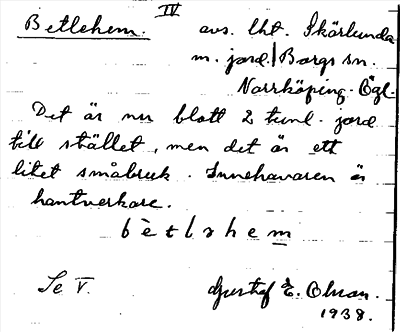 IV
Betlehem. avs. lht. Skärlunda
m. jord. Borgs sn.
Norrköping. Ögl.
Det är nu blott 2 tunl. jord
till stället, men det är ett
litet småbruk. Innehavaren är
hantverkare.
bètlshem
Se V. Gustaf E. Olsson.
1938.